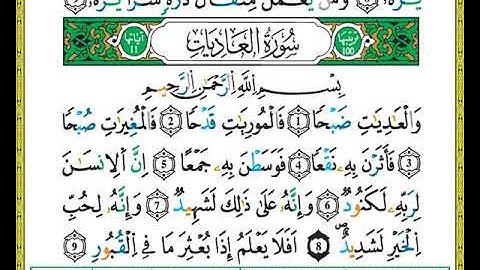 يَرَهُۥ ۝ وَمَن يَعْمَلْ مِثْقَالَ ذَرَّةٍ شَرًّا يَرَهُۥ
ترتيبها 100 سُورَةُ العَادِيَاتِ آياتها 11
بِسْمِ اللَّهِ الرَّحْمَٰنِ الرَّحِيمِ
وَالْعَادِيَاتِ ضَبْحًا (1) فَالْمُورِيَاتِ قَدْحًا (2) فَالْمُغِيرَاتِ صُبْحًا
(3) فَأَثَرْنَ بِهِۦ نَقْعًا (4) فَوَسَطْنَ بِهِۦ جَمْعًا (5) إِنَّ الْإِنسَانَ
لِرَبِّهِۦ لَكَنُودٌ (6) وَإِنَّهُۥ عَلَىٰ ذَٰلِكَ لَشَهِيدٌ (7) وَإِنَّهُۥ لِحُبِّ
الْخَيْرِ لَشَدِيدٌ (8) أَفَلَا يَعْلَمُ إِذَا بُعْثِرَ مَا فِي الْقُبُورِ (9)